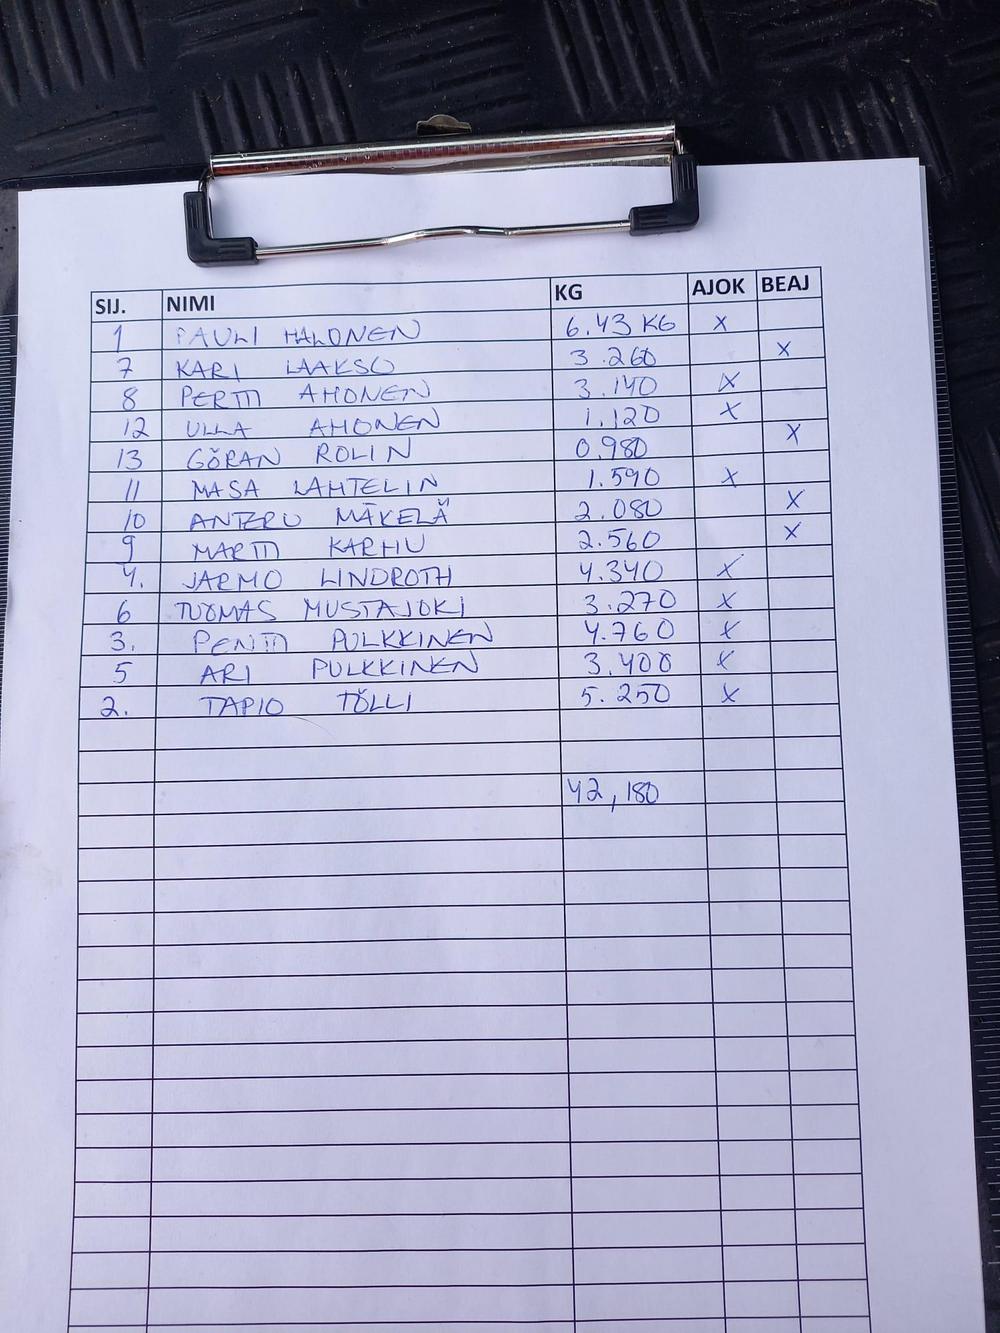 SIJ. NIMI KG AJOK BEAJ
1 PAULI HALONEN 6.43 KG X
7 KARI LAAKSO 3.260 X
8 PERTTI AHONEN 3.140 X
12 ULLA AHONEN 1.120 X
13 GÖRAN ROLIN 0.980 X
11 MASA LAHTELIN 1.590 X
10 ANTERO MÄKELÄ 2.080 X
9 MARTTI KARHU 2.560 X
4. JARMO LINDROTH 4.340 X
6 TUOMAS MUSTAJOKI 3.270 X
3. PENTTI PULKKINEN 4.760 X
5 ARI PULKKINEN 3.400 X
2. TAPIO TÖLLI 5.250 X
42,180